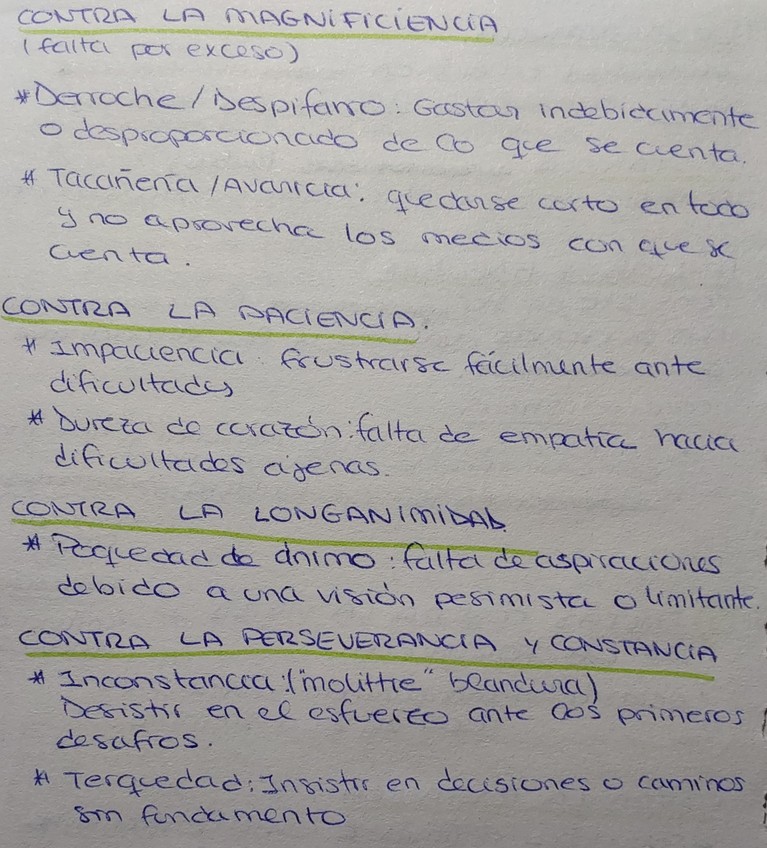 CONTRA LA MAGNIFICIENCIA
(falta por exceso)
*Derroche/Despifarro: Gastar indebidamente
o desproporcionado de lo que se cuenta.
* Tacañería/Avaricia: quedarse corto en todo
y no aprovecha los medios con que se
cuenta.
CONTRA LA PACIENCIA.
* Impaciencia: frustrarse fácilmente ante
dificultades
* Dureza de corazón: falta de empatía hacia
dificultades ajenas.
CONTRA LA LONGANIMIDAD
* Poquedad de ánimo: falta de aspiraciones
debido a una visión pesimista o limitante.
CONTRA LA PERSEVERANCIA Y CONSTANCIA
* Inconstancia: ("molittie" blandura)
Desistir en el esfuerzo ante los primeros
desafíos.
* Terquedad: Insistir en decisiones o caminos
sin fundamento